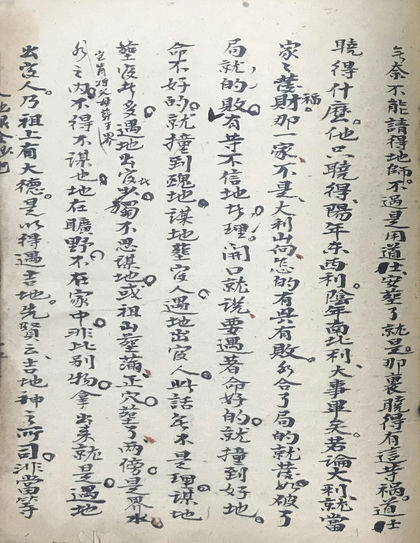 奈不能請得地師不過是用道士安塋了就是那裏曉得有這等禍道士
曉得什麽他只曉得陽年東西利陰年南北利大事畢矣若論大利就當
家家發財福那一家不是大利山向怎的有興有敗必合了局的就發如破了
局就的敗有等不信地的理開口就說要遇著命好的就撞到好地
命不好的就撞到醜地謀地塋官人遇地出官人此話年不是理謀地
塋後此多遇地出官少獨不思謀地或祖山塋滿正穴塋了兩傍是界水
豈肯將父母葬于界
水之內不得不謀也地在曠野不在家中非比別物拿出來就是遇地
出官人乃祖上有大德是以得遇吉地先賢云吉地神之所司非當等